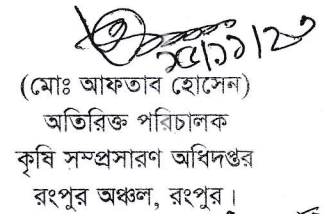 ২৫/১১/২০
(মোঃ আফতাব হোসেন)
অতিরিক্ত পরিচালক
কৃষি সম্প্রসারণ অধিদপ্তর
রংপুর অঞ্চল, রংপুর।